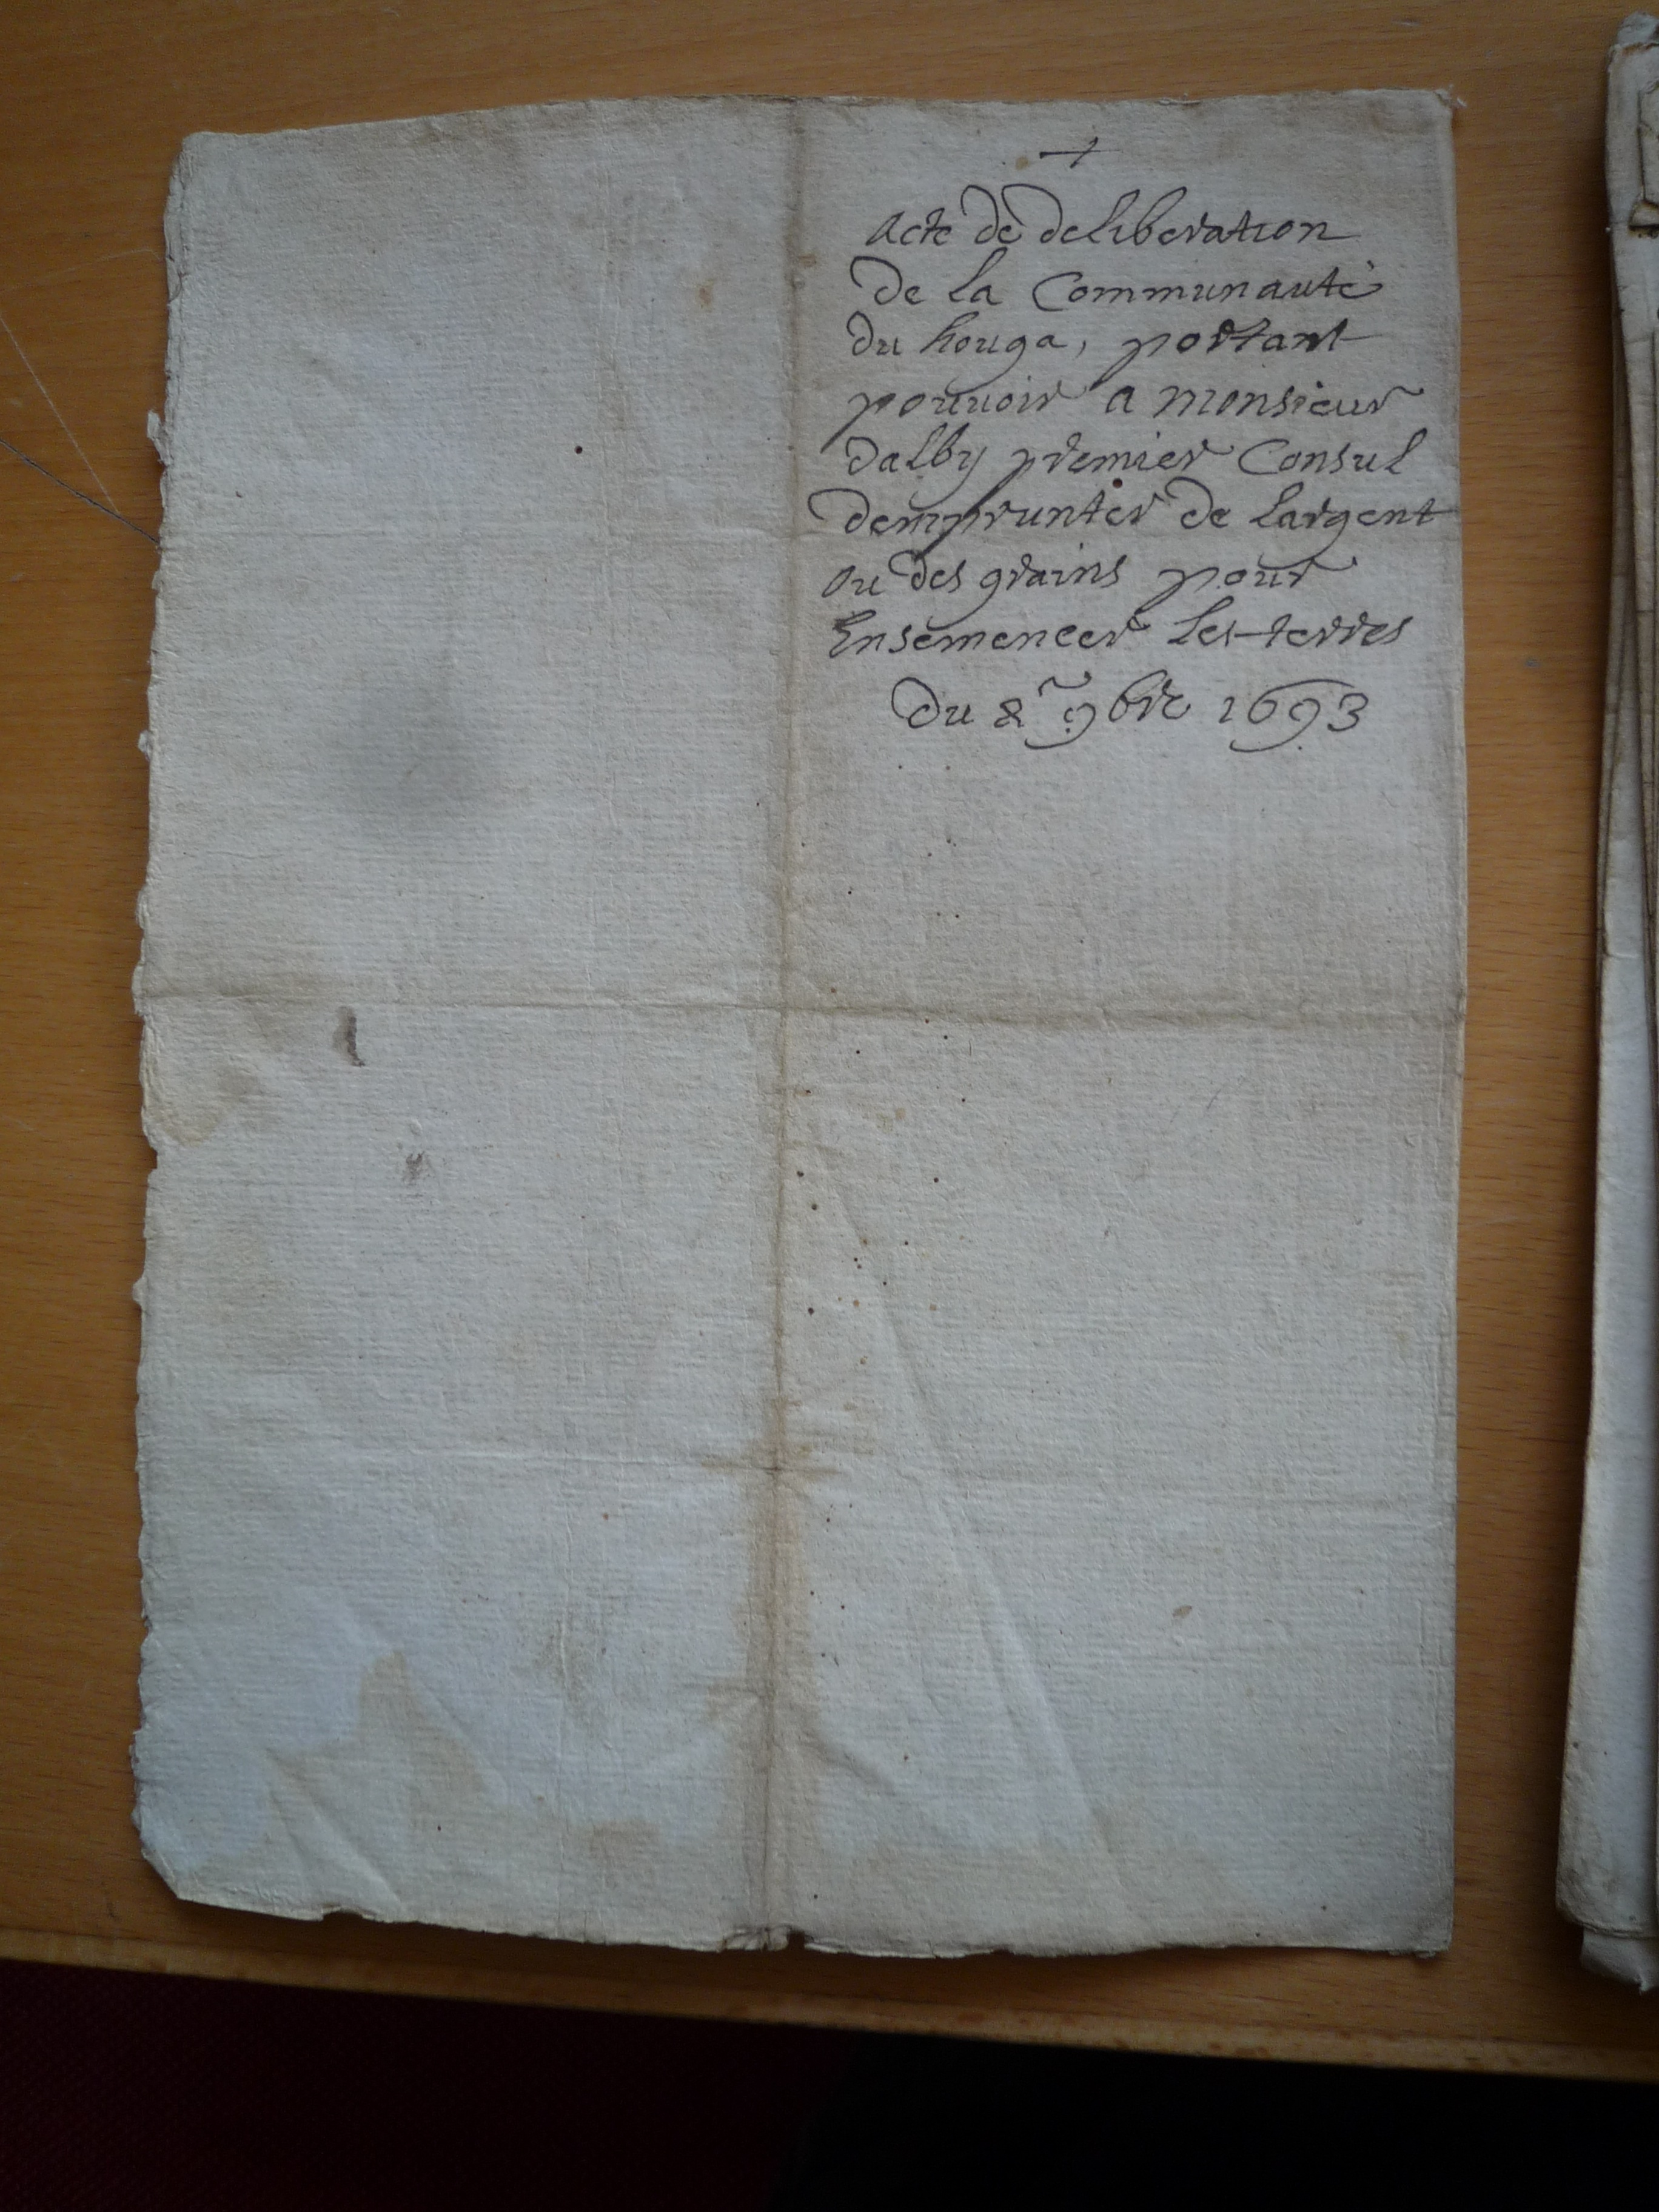 +
acte de deliberation
de la Communauté
du houga, portant
pouuoir a monsieur
dalby premier Consul
demprunter de largent
ou des grains pour
Ensemencer les terres
du 8 9bre 1693